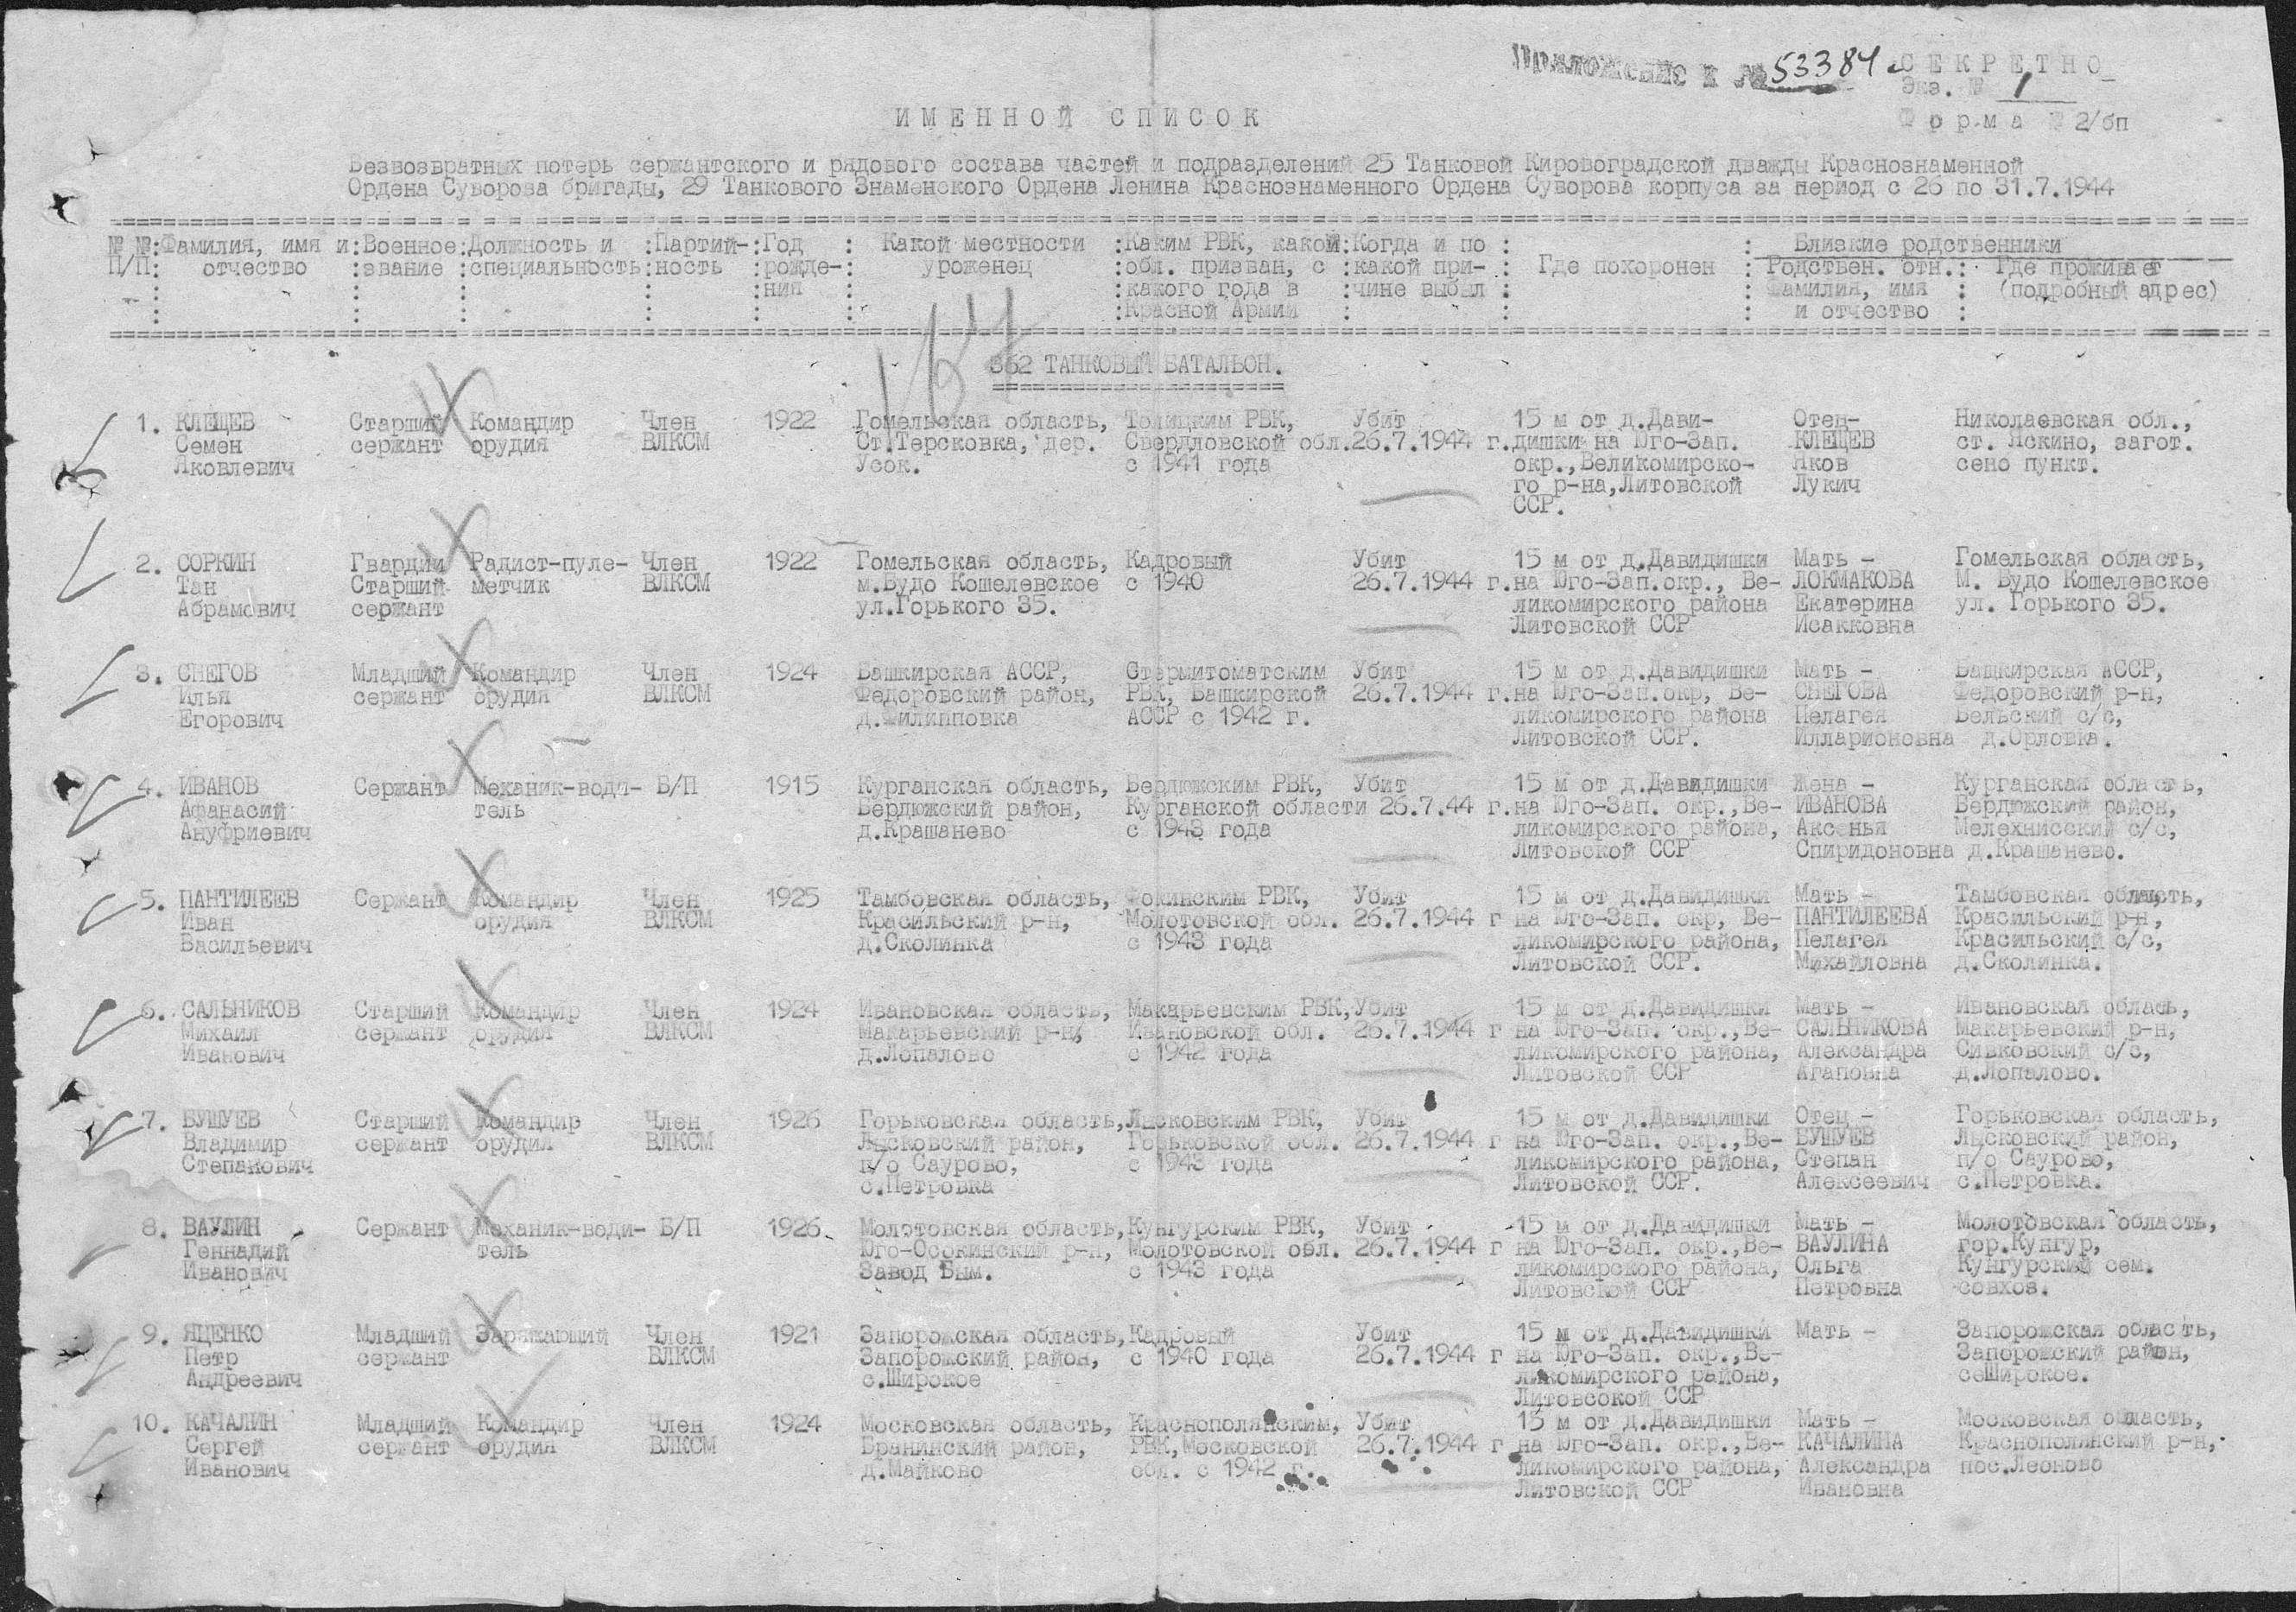 Приложение к № 53384. СЕКРЕТНО
Экз. № 1
Форма № 2/бп
ИМЕННОЙ СПИСОК
Безвозвратных потерь сержантского и рядового состава частей и подразделений 25 Танковой Кировоградской дважды Краснознаменной
Ордена Суворова бригады, 29 Танкового Знаменского Ордена Ленина Краснознаменного Ордена Суворова корпуса за период с 26 по 31.7.1944
№ №:Фамилия, имя и:Военное:Должность и :Партий-:Год : Какой местности :Каким РВК, какой:Когда и по : : Близкие родственники
П/П: отчество :звание :специальность:ность :рожде-: уроженец :обл. призван, с :какой при- : Где похоронен : Родствен. отн.: Где проживает
:ния :какого года в :чине выбыл : : Фамилия, имя : (подробный адрес)
:Красной Армии : : и отчество :
167
362 ТАНКОВЫЙ БАТАЛЬОН.
1. КЛЕЩЕВ Старший Командир Член 1922 Гомельская область, Толицким РВК, Убит 15 м от д.Дави- Отец- Николаевская обл.,
Семен сержант орудия ВЛКСМ Ст.Терсковка, дер. Свердловской обл.26.7.1944 г.дишки на Юго-Зап. КЛЕЩЕВ ст. Яскино, загот.
Яковлевич Усок. с 1941 года окр.,Великомирско- Яков сено пункт.
го р-на,Литовской Лукич
ССР.
2. СОРКИН Гвардии Радист-пуле- Член 1922 Гомельская область, Кадровый Убит 15 м от д.Давидишки Мать - Гомельская область,
Тан Старший метчик ВЛКСМ м.Будо Кошелевское с 1940 26.7.1944 г.на Юго-Зап.окр., Ве- ЛОКМАКОВА М. Будо Кошелевское
Абрамович сержант ул.Горького 35. ликомирского района Екатерина ул. Горького 35.
Литовской ССР Исакковна
3. СНЕГОВ Младший Командир Член 1924 Башкирская АССР, Стермитоматским Убит 15 м от д.Давидишки Мать - Башкирская АССР,
Илья сержант орудия ВЛКСМ Федоровский район, РВК, Башкирской 26.7.1944 г.на Юго-Зап.окр, Ве- СНЕГОВА Федоровский р-н,
Егорович д.Филипповка АССР с 1942 г. ликомирского района Пелагея Бельский с/с,
Литовской ССР. Илларионовна д.Орловка.
4. ИВАНОВ Сержант Механик-води- Б/П 1915 Курганская область, Бердюжским РВК, Убит 15 м от д.Давидишки Жена - Курганская область,
Афанасий тель Бердюжский район, Курганской области 26.7.44 г.на Юго-Зап. окр.,Ве- ИВАНОВА Бердюжский район,
Ануфриевич д.Крашанево с 1943 года ликомирского района, Аксенья Мелехнисский с/с,
Литовской ССР Спиридоновна д.Крашанево.
5. ПАНТИЛЕЕВ Сержант Командир Член 1925 Тамбовская область, Фокинским РВК, Убит 15 м от д.Давидишки Мать - Тамбовская область,
Иван орудия ВЛКСМ Красильский р-н, Молотовской обл. 26.7.1944 г на Юго-Зап. окр, Ве- ПАНТИЛЕЕВА Красильский р-н,
Васильевич д.Сколинка с 1943 года ликомирского района, Пелагея Красильский с/с,
Литовской ССР. Михайловна д.Сколинка.
6. САЛЬНИКОВ Старший Командир Член 1924 Ивановская область, Макарьевским РВК,Убит 15 м от д.Давидишки Мать - Ивановская область,
Михаил сержант орудия ВЛКСМ Макарьевский р-н, Ивановской обл. 26.7.1944 г на Юго-Зап. окр.,Ве- САЛЬНИКОВА Макарьевский р-н,
Иванович д.Лопалово с 1942 года ликомирского района, Александра Сивковский с/с,
Литовской ССР Агаповна д.Лопалово.
7. БУШУЕВ Старший Командир Член 1926 Горьковская область,Лысковским РВК, Убит 15 м от д.Давидишки Отец - Горьковская область,
Владимир сержант орудия ВЛКСМ Лысковский район, Горьковской обл. 26.7.1944 г на Юго-Зап. окр.,Ве- БУШУЕВ Лысковский район,
Степанович п/о Саурово, с 1943 года ликомирского района, Степан п/о Саурово,
с.Петровка Литовской ССР. Алексеевич с.Петровка.
8. ВАУЛИН Сержант Механик-води- Б/П 1926 Молотовская область,Кунгурским РВК, Убит 15 м от д.Давидишки Мать - Молотовская область,
Геннадий тель Юго-Осокинский р-н, Молотовской обл. 26.7.1944 г на Юго-Зап. окр.,Ве- ВАУЛИНА гор.Кунгур,
Иванович Завод Бым. с 1943 года ликомирского района, Ольга Кунгурский сем.
Литовской ССР Петровна совхоз.
9. ЯЦЕНКО Младший Заряжающий Член 1921 Запорожская область,Кадровый Убит 15 м от д.Давидишки Мать - Запорожская область,
Петр сержант ВЛКСМ Запорожский район, с 1940 года 26.7.1944 г на Юго-Зап. окр.,Ве- Запорожский район,
Андреевич с.Широкое ликомирского района, сеШирокое.
Литовсокой ССР
10. КАЧАЛИН Младший Командир Член 1924 Московская область, Краснополянским, Убит 15 м от д.Давидишки Мать - Московская область,
Сергей сержант орудия ВЛКСМ Бранинский район, РВК,Московской 26.7.1944 г на Юго-Зап. окр.,Ве- КАЧАЛИНА Краснополянский р-н,
Иванович д.Майково обл. с 1942 г. ликомирского района, Александра пос.Леоново
Литовской ССР Ивановна